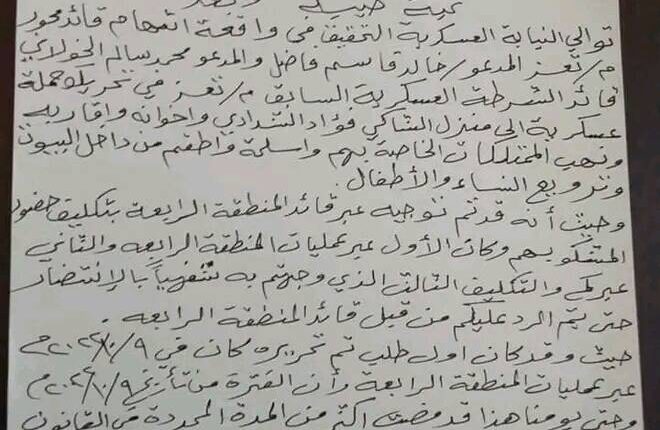 تحية طيبة وبعد
توالي النيابة العسكرية التحقيق في واقعة اتهام قائد محور
م/تعز المدعو/خالد قاسم فاضل والمدعو محمد سالم الخولاني
قائد الشرطة العسكرية السابق م/تعز في تحريك حملة
عسكرية الى منزل الشاكي فؤاد الشدادي واخوانه واقاربه
ونهب الممتلكات الخاصة بهم واسلحة واطقم من داخل البيوت
وترويع النساء والأطفال.
وحيث أنه قد تم توجيه عبر قائد المنطقة الرابعة بتكليف حضور
المشكو بهم وكان الأول عبر عمليات المنطقة الرابعه والثاني
عبركم والتكليف الثالث الذي وجهتم به شفهياً بالإنتضار
حتى يتم الرد عليكم من قبل قائد المنطقة الرابعه.
حيث وقد كان اول طلب تم تحريره كان في
عبر عمليات المنطقة الرابعة وأن الفترة من تأريخ
وحتى يومنا هذا قد مضت اكثر من المدة المحددة في القانون